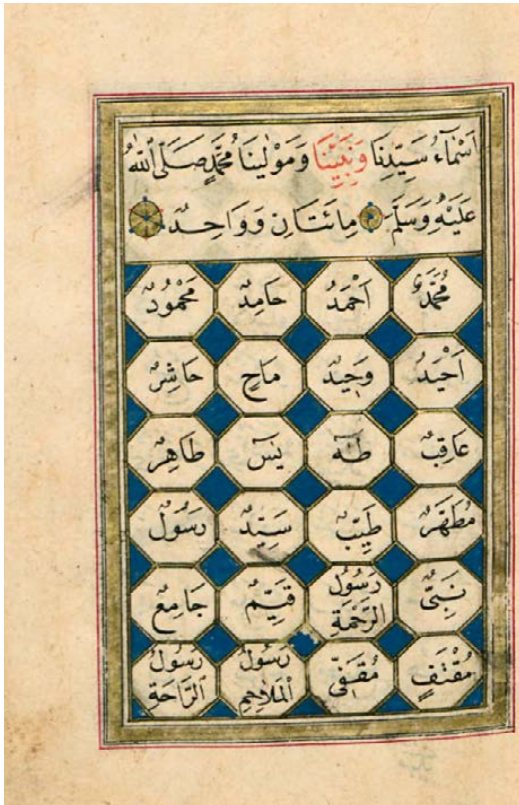 اَسْمَآءُ سَيِّدِنَا وَنَبِيِّنَا وَمَوْلٰينَا مُحَمَّدٍ صَلَّى اللّٰهُ
عَلَيْهِ وَسَلَّمَ مِائَتَانِ وَوَاحِدٌ
مُحَمَّدٌ اَحْمَدُ حَامِدٌ مَحْمُودٌ
اَحْيَدُ وَحِيدٌ مَاحٍ حَاشِرٌ
عَاقِبٌ طٰهٰ يٰسٓ طَاهِرٌ
مُطَهَّرٌ طَيِّبٌ سَيِّدٌ رَسُولٌ
نَبِيٌّ رَسُولُ الرَّحْمَةِ قَيِّمٌ جَامِعٌ
مُقْتَفٍ مُقَفًّى رَسُولُ الْمَلَاحِمِ رَسُولُ الرَّاحَةِ